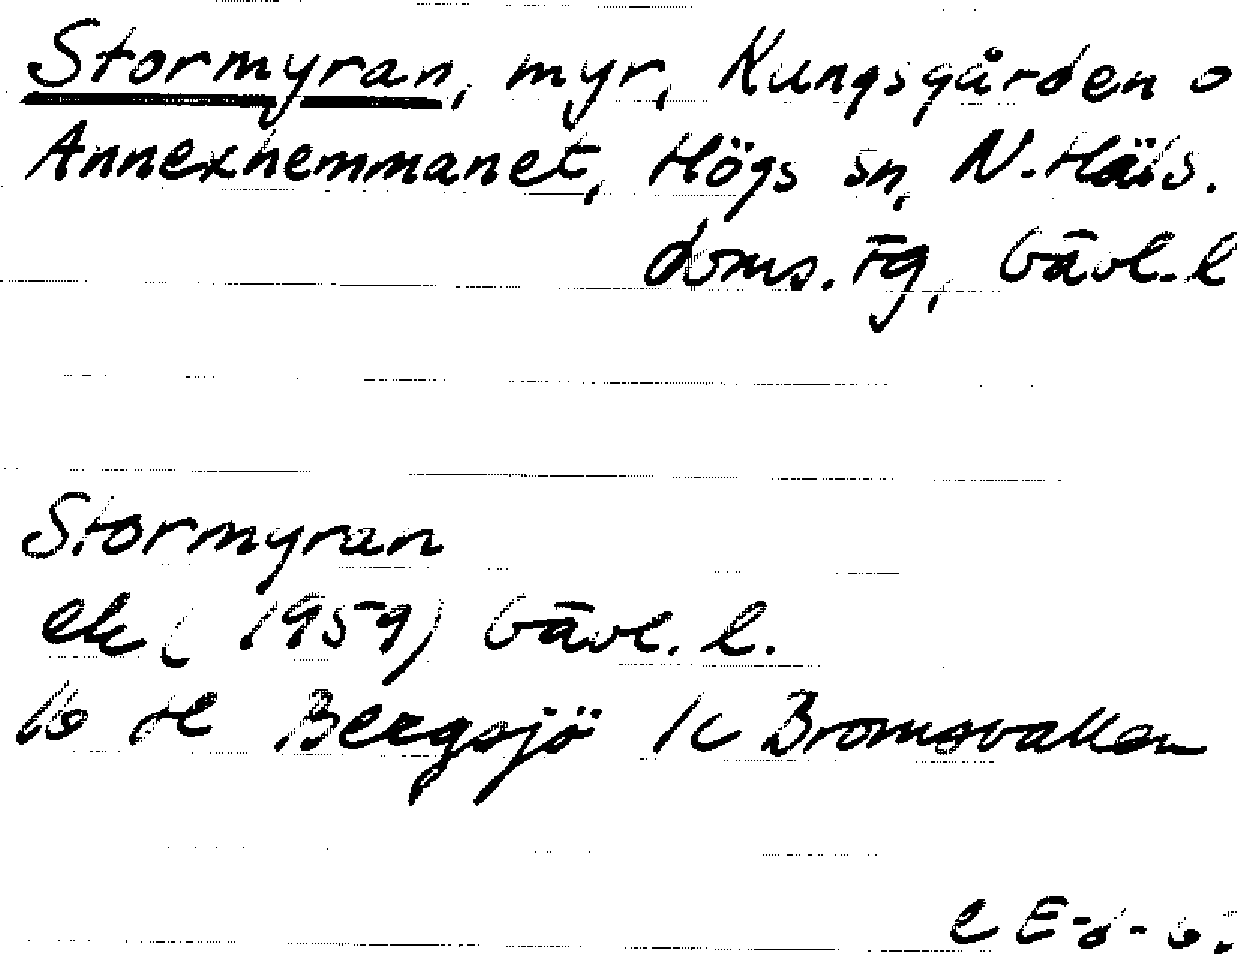 Stormyran, myr, Kungsgården o
Annexhemmanet, Högs sn, N. Häls.
doms. fg, Gävl. l
Stormyran
ek (1959) Gävl. l.
16 H Bergsjö 1c Bromsvallen